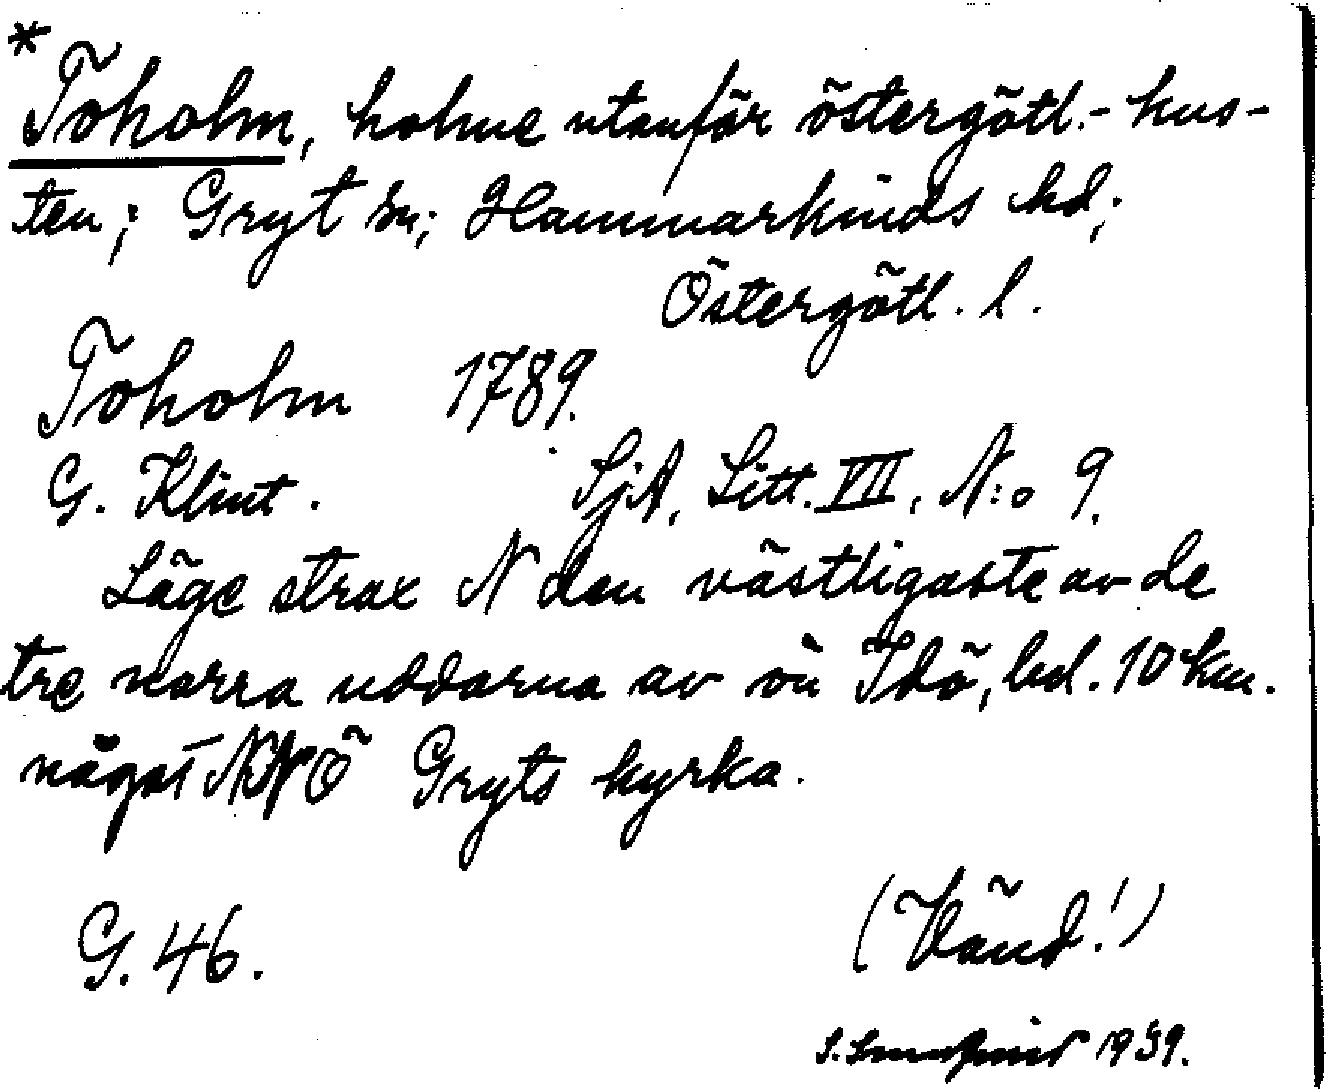 *
Toholm, holme utanför östergötl.-kus-
ten; Gryt sn; Hammarkinds hd;
Östergötl. l.
Toholm 1789.
G. Klint. SjA, Litt. VII, N:o 9.
Läge strax N den västligaste av de
tre norra uddarna av ön Idö, bel. 10 km.
något NNÖ Gryts kyrka.
G. 46. (Vänd!)
1939.